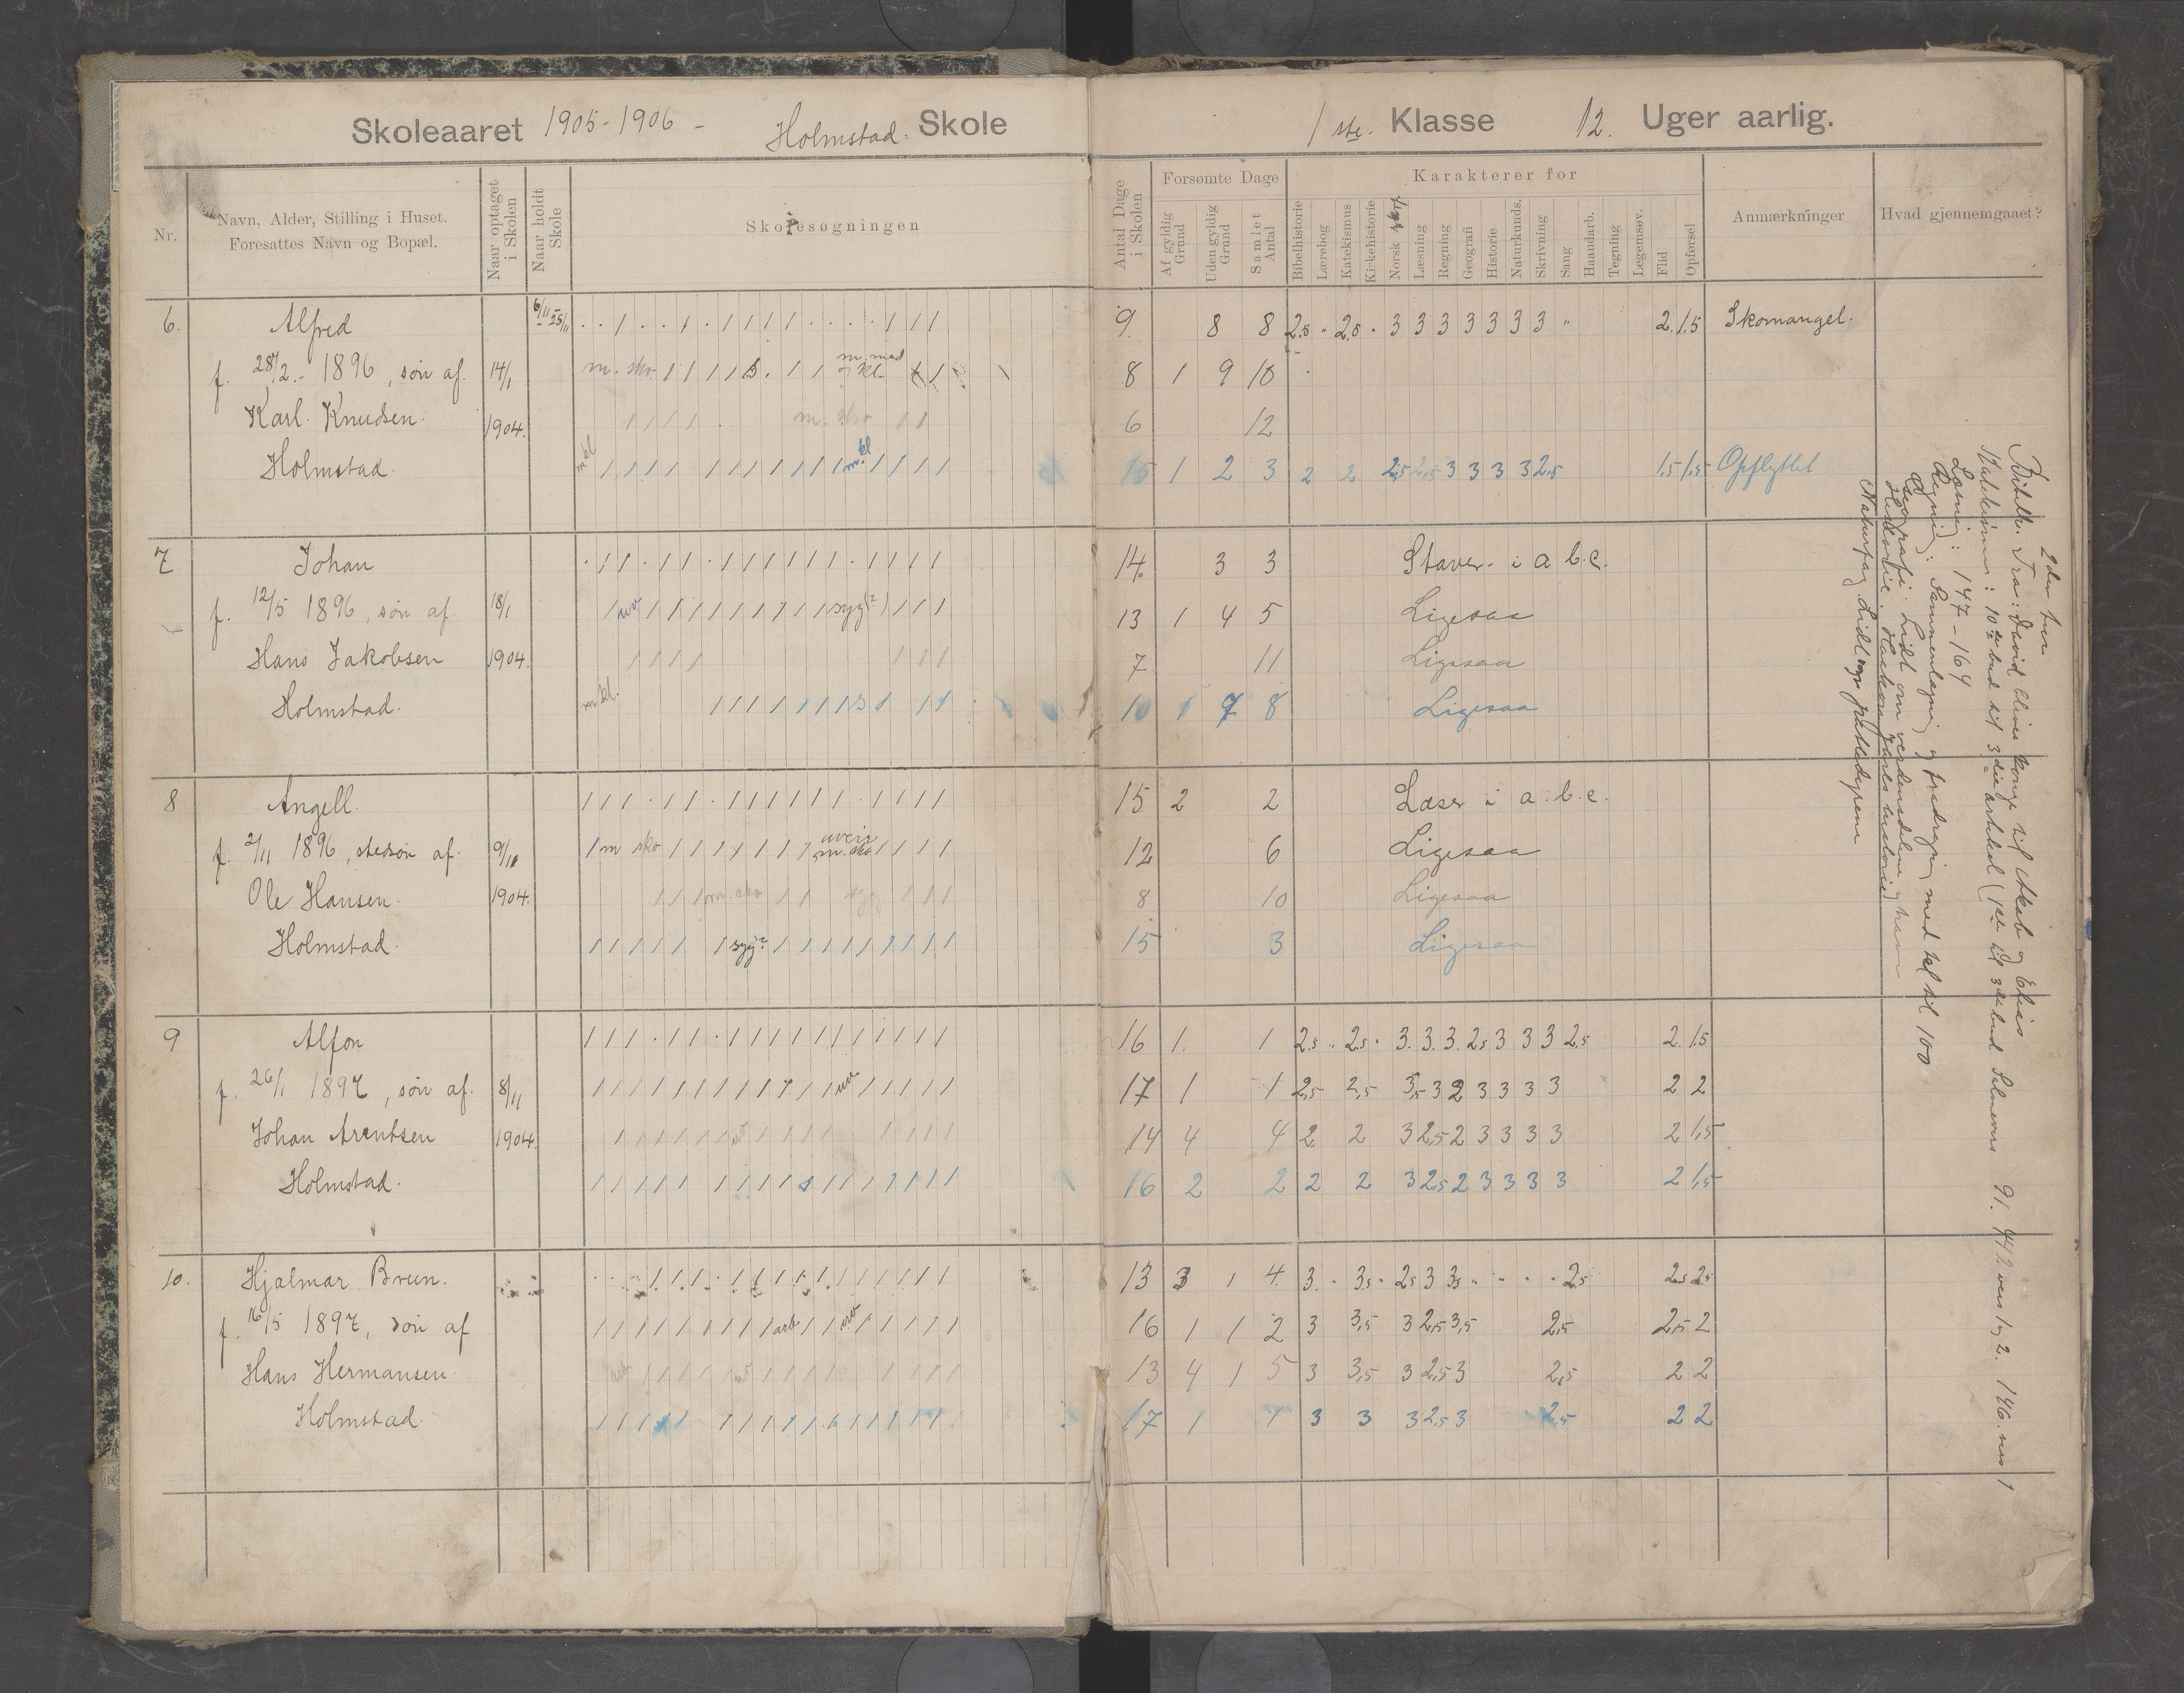 Skoleaaret 1905-1906 - Holmstad. Skole
Nr.
Navn, Alder, Stilling i Huset.
Foresattes Navn og Bopæl.
Naar optaget i Skolen
Naar holdt Skole
Skolesøgningen
6. Alfred 6/11 - 25/11
f. 28/2 - 1896, søn af. 14/1 m. sko
Karl Knudsen. 1904. m. sko
Holmstad.
7 Johan
f. 12/5 1896, søn af. 18/1 uv syg(?)
Hans Jakobsen 1904.
Holmstad. m kl.
8 Angell.
f. 2/11 1896, stedsøn af. 9/10 m sko uveir m. sko
Ole Hansen. 1904. m. sko syg
Holmstad. syg?
9 Alfon
f. 26/1 1897, søn af. 8/11 uv
Johan Arentsen 1904. uv
Holmstad.
10. Hjalmar Bruun.
f. 16/5 1897, søn af arb uv
Hans Hermansen
Holmstad.
1 ste. Klasse 12. Uger aarlig.
Antal Dage i Skolen
Forsømte Dage
Af gyldig Grund
Uden gyldig Grund
Samlet Antal
Karakterer for
Bibelhistorie
Lærebog
Katekismus
Kirkehistorie
Norsk
Læsning
Regning
Geografi
Historie
Naturkunds.
Skrivning
Sang
Haandarb.
Tegning
Legemsøv.
Flid
Opførsel
Anmærkninger
Hvad gjennemgaaet?
9. 8 8 2.5 " 2.5 " 3 3 3 3 3 3 3 " 2. 1.5 Skomangel.
8 1 9 10
6 12
15 1 2 3 2 2 2,5 2,5 3 3 3 3 2,5 1,5 1,5 Opflyttet
14. 3 3 Staver i a b.c.
13 1 4 5 Ligesaa
7 11 Ligesaa
10 1 7 8 Ligesaa
15 2 2 Læser i a.b.c.
12 6 Ligesaa
8 10 Ligesaa
15 3 Ligesaa
16 1. 1 2.5 " 2.5 " 3. 3. 3. 2.5 3 3 3 2,5 2. 1.5
17 1 1 2,5 2,5 3,5 3 2 3 3 3 3 2 2
14 4 4 2 2 3 2,5 2 3 3 3 3 2 1,5
16 2 2 2 2 3 2,5 2 3 3 3 3 2 1,5
13 3 1 4. 3. " 3.5 " 2.5 3 3.5 " " " " 2.5 2.5 2.5
16 1 1 2 3 3,5 3 2,5 3,5 2,5 2,5 2
13 4 1 5 3 3,5 3 2,5 3 2,5 2 2
17 1 1 3 3 3 2,5 3 2,5 2 2
2den tur
Bibelh. Fra: David bliver konge til Akab og Elias
Katekismus: 10de bud til 3die artikel
Læsning: 147-164
Regning: Sammenlægning og fradragning med tal til 100
Geografi: Lidt om verdensdelene og havn
Historie: Haakon Jarls historie
Naturfag Lidt om pattedyrene